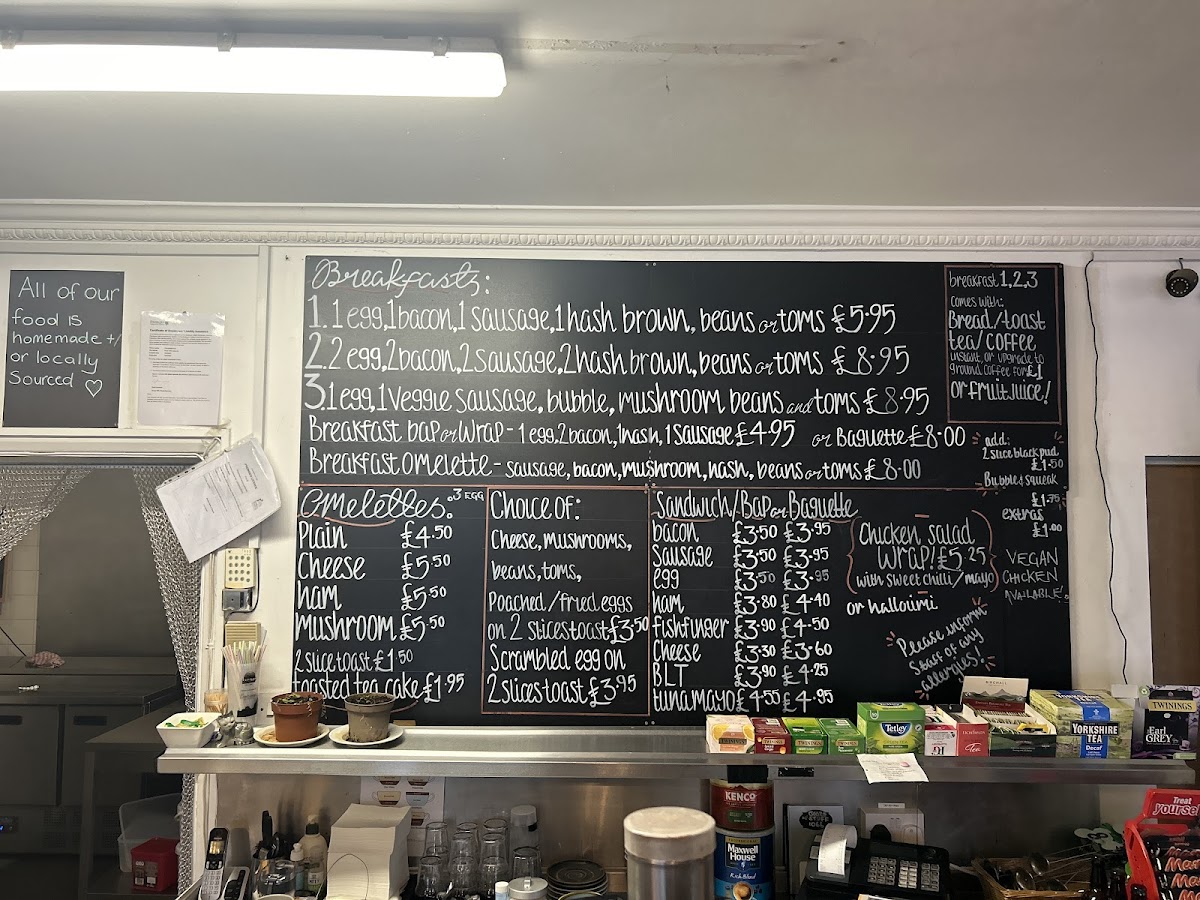 All of our
food is
homemade +/
or locally
Sourced ♡
Breakfasts:
1. 1 egg, 1 bacon, 1 sausage, 1 hash brown, beans or toms £5.95
2. 2 egg, 2 bacon, 2 sausage, 2 hash brown, beans or toms £8.95
3. 1 egg, 1 Veggie sausage, bubble, mushroom beans and toms £8.95
Breakfast bap or Wrap - 1 egg, 2 bacon, 1 hash, 1 sausage £4.95 or Baguette £8.00
Breakfast Omelette - sausage, bacon, mushroom, hash, beans or toms £8.00
breakfast 1,2,3
comes with:
Bread/toast
tea/coffee
instant, or upgrade to
ground coffee for £1
or fruit juice!
add:
2 slice black pud
£1.50
Bubble & squeak
£1.75
extras
£1.00
VEGAN
CHICKEN
AVAILABLE!
Omelettes: 3 EGG
Plain £4.50
Cheese £5.50
ham £5.50
mushroom £5.50
2 slice toast £1.50
toasted tea cake £1.95
Choice of:
Cheese, mushrooms,
beans, toms,
Poached/fried eggs
on 2 slices toast £3.50
Scrambled egg on
2 slices toast £3.95
Sandwich/Bap or Baguette
bacon £3.50 £3.95
Sausage £3.50 £3.95
egg £3.50 £3.95
ham £3.80 £4.40
fishfinger £3.90 £4.50
Cheese £3.30 £3.60
BLT £3.90 £4.25
tunamayo £4.55 £4.95
Chicken salad
WRAP! £5.25
with sweet chilli/mayo
or halloumi
Please inform
staff of any
allergies!
TWININGS
TWININGS
Tetley
Tea
YORKSHIRE
TEA
Decaf
TWININGS
Earl
GREY
KENCO
Maxwell
House
Rich Blend
Treat
yourself